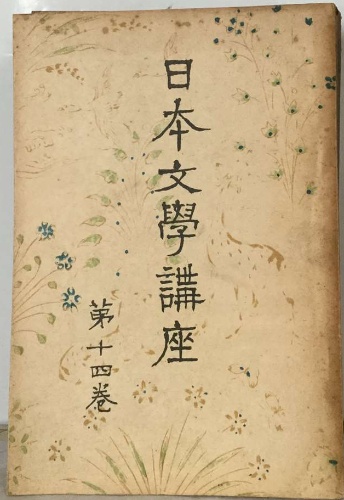 日本文學講座
第十四巻